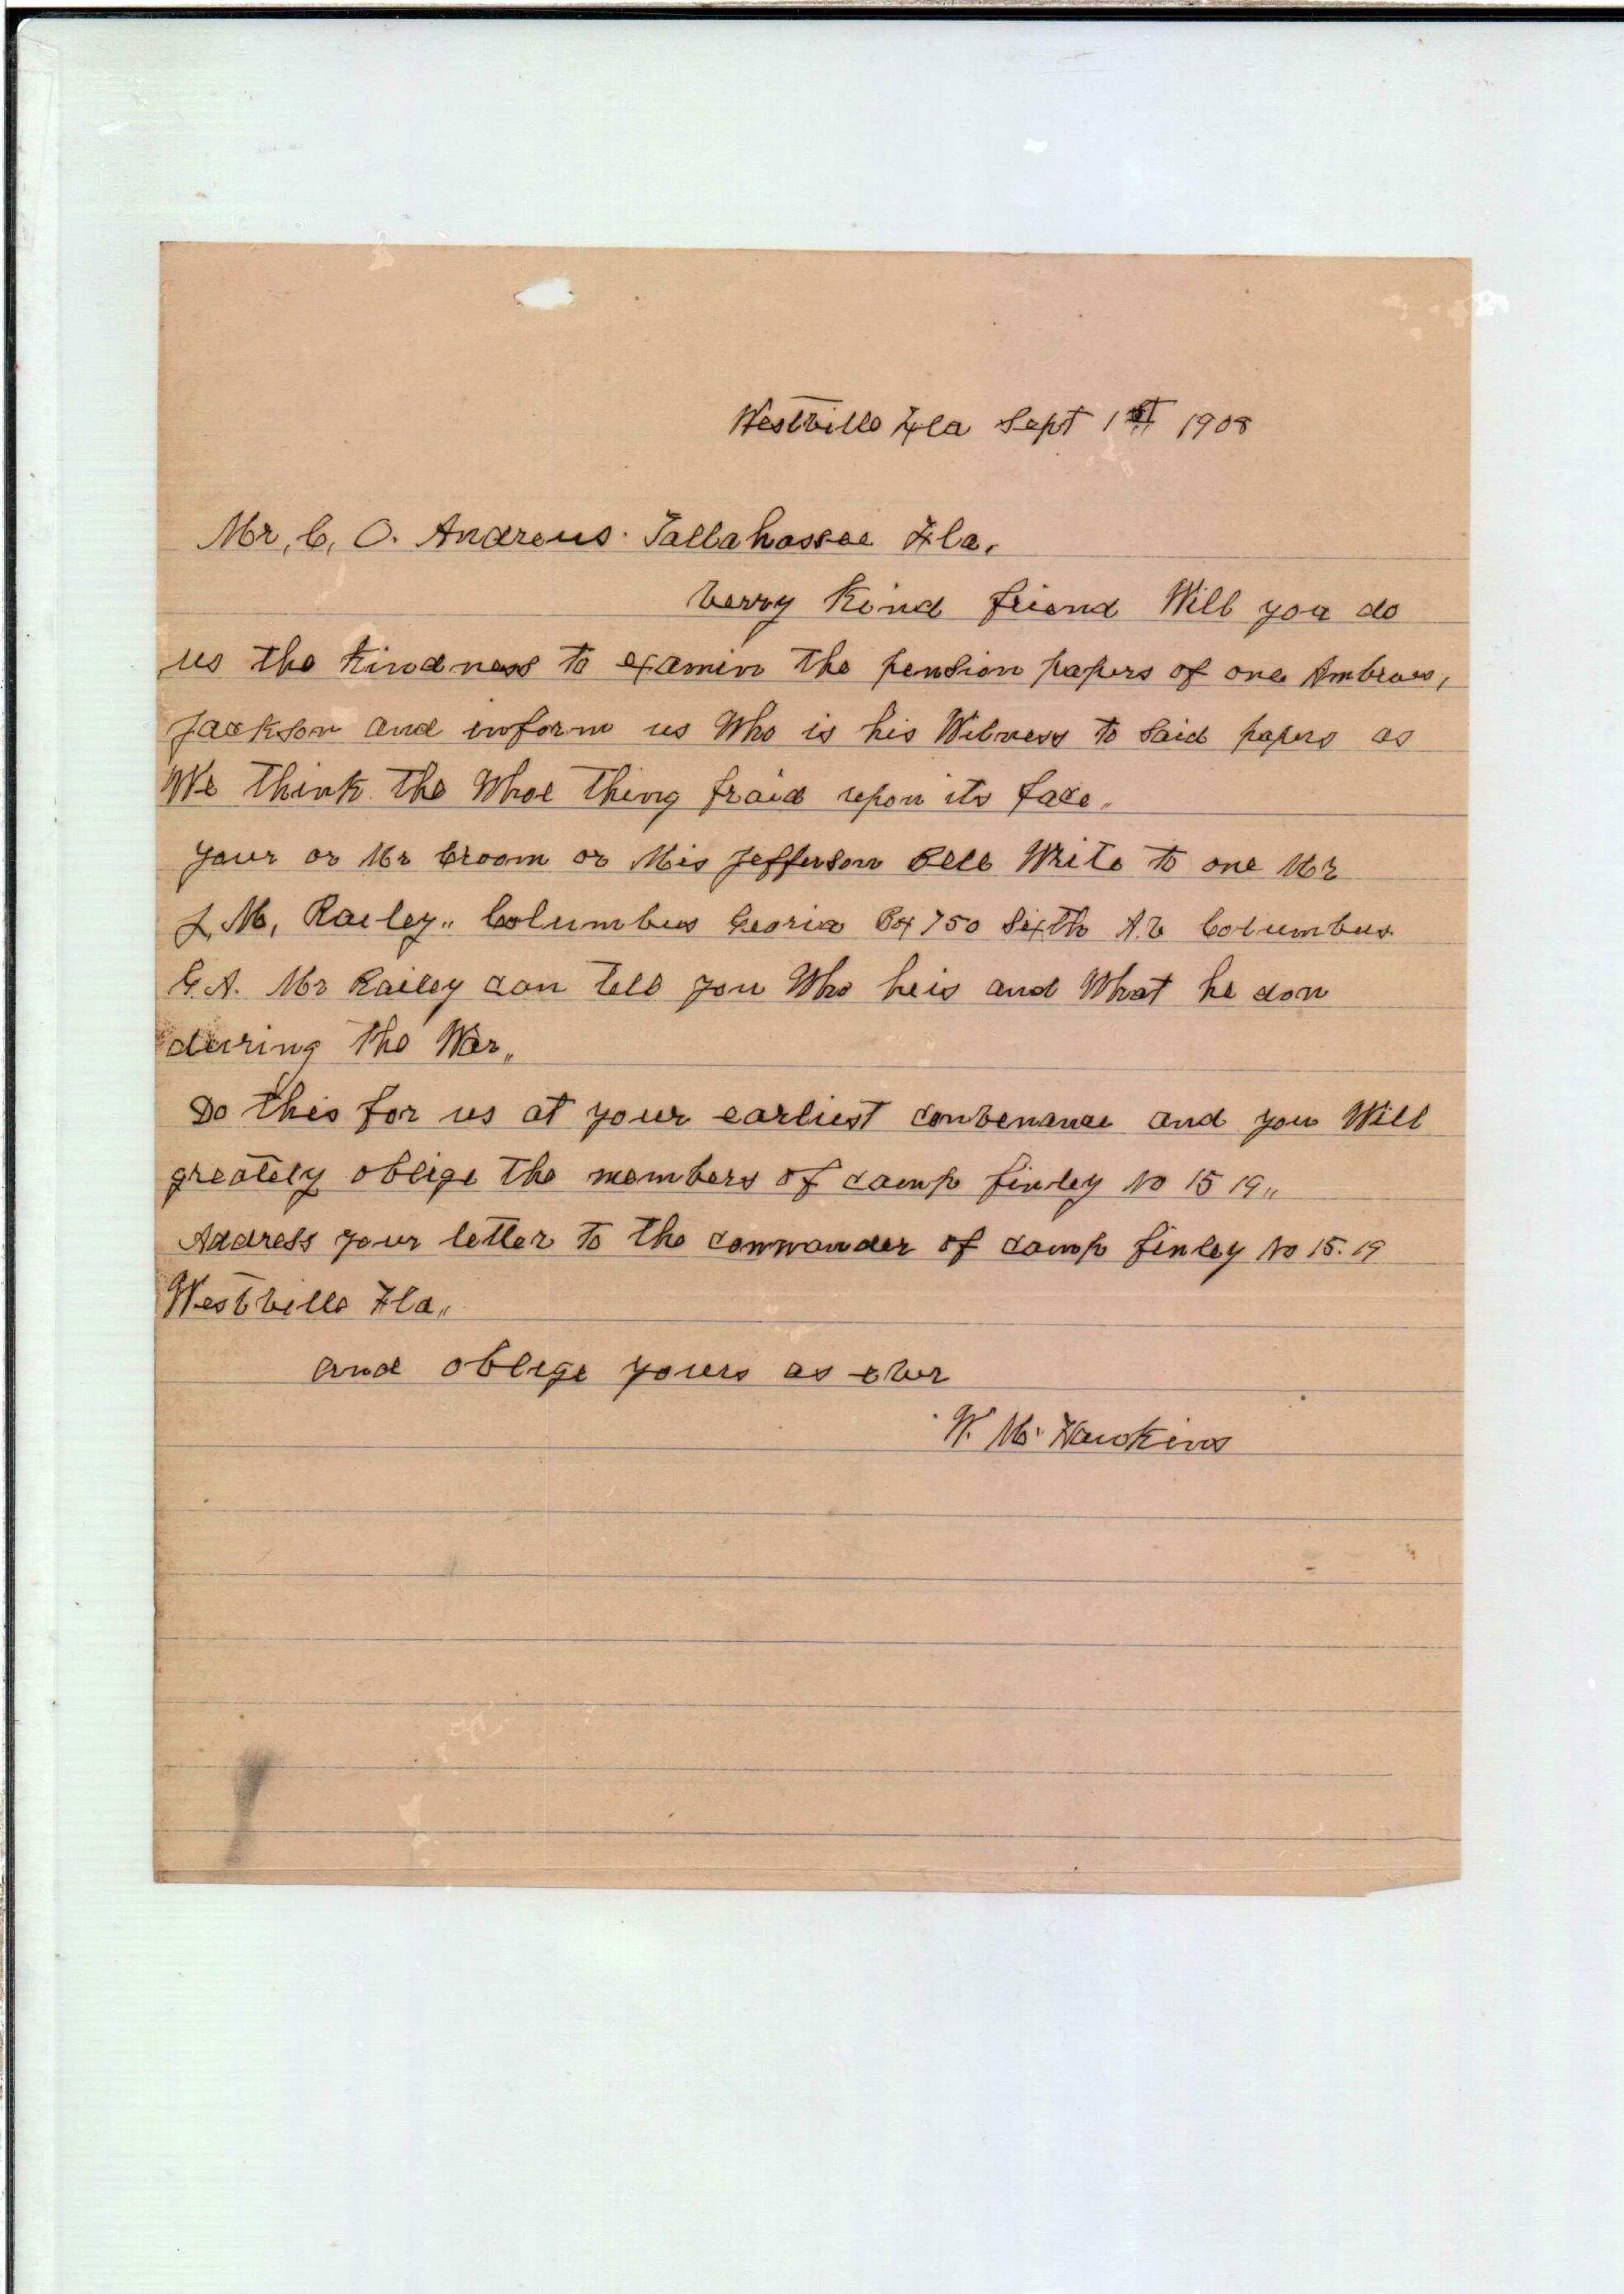 Westville Fla Sept 1st 1908
Mr, C, O. Andrews Tallahassee Fla,
verry kind friend Will you do
us the kindness to examin the pension papers of one Ambrows,
Jackson and inform us Who is his Witness to said papers as
We think the Whoe thing fraid upon its face,,
your or Mr Croom or Mis Jefferson Bell Write to one Mr
J, M, Railey,, Columbus Georia Box 750 Sixth A.v Columbus
G.A. Mr Railey can tell you Who he is and What he don
during the War,,
Do this for us at your earliest convenance and you Will
greately oblige the members of camp finley No 15 19,,
Address your letter to the commander of camp finley No 15.19
Westville Fla,,
and oblige yours as ever
W. M. Hawkins